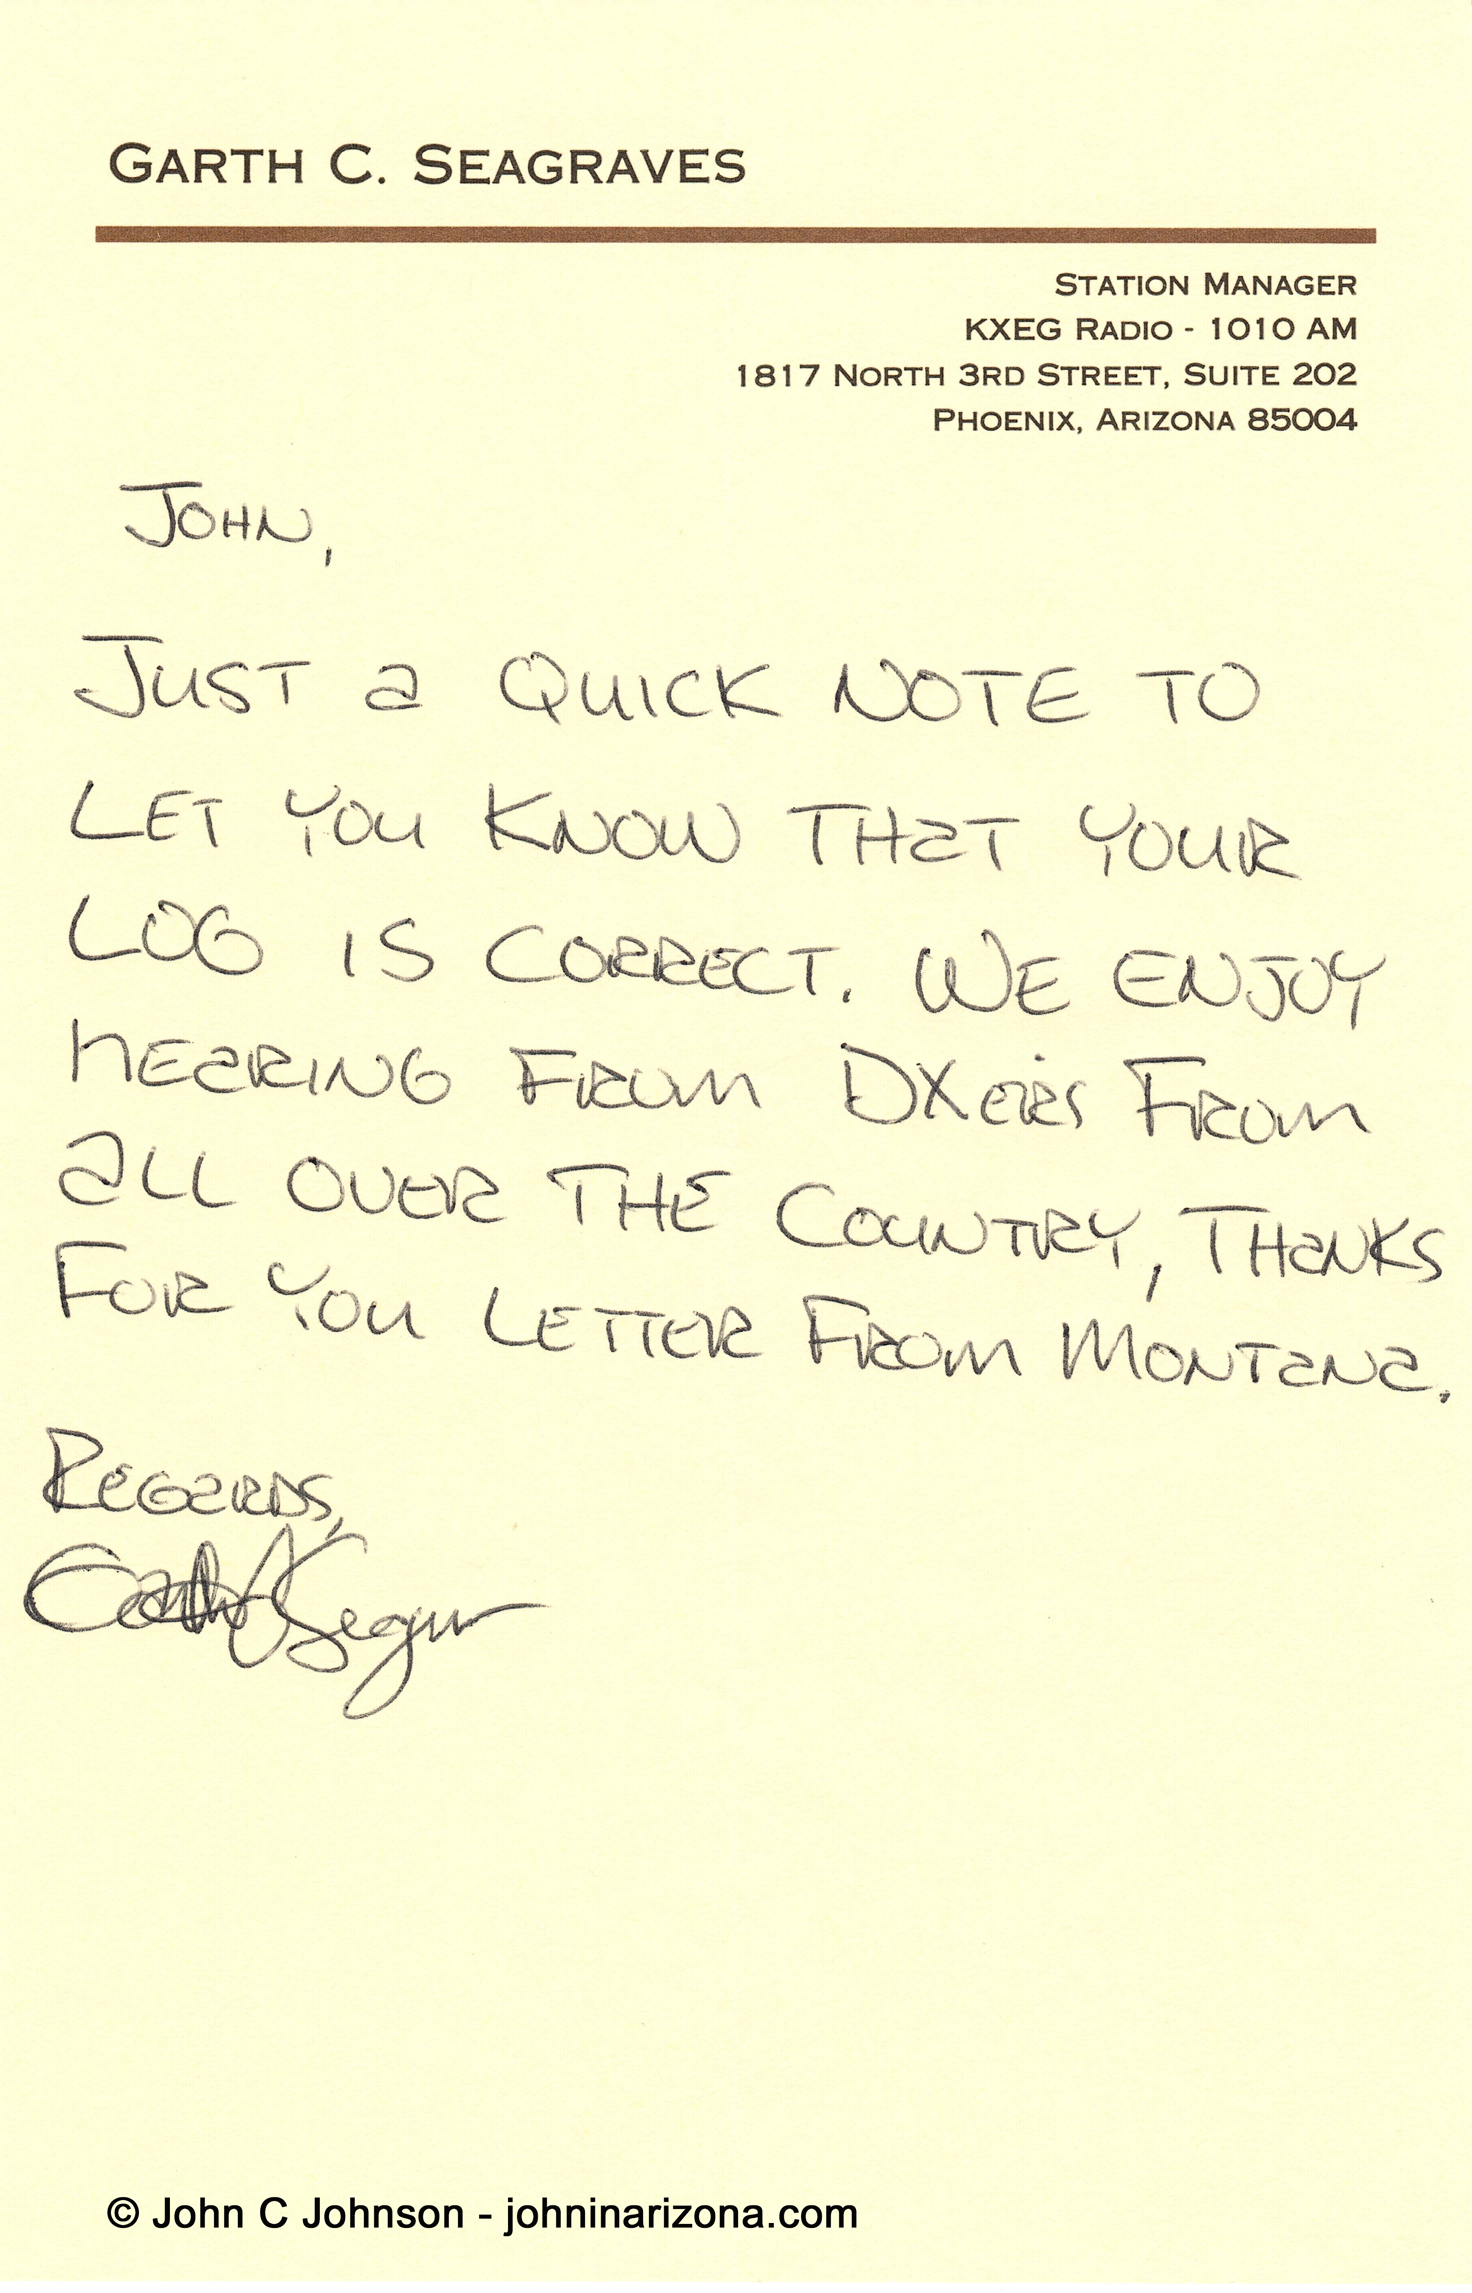 GARTH C. SEAGRAVES
STATION MANAGER
KXEG RADIO - 1010 AM
1817 NORTH 3RD STREET, SUITE 202
PHOENIX, ARIZONA 85004
JOHN,
JUST a QUICK NOTE TO
LET YOU KNOW THaT YOUR
LOG IS CORRECT. WE ENJOY
HEaRING FROM DXers FROM
aLL OVER THE COUNTRY, THaNKS
FOR YOU LETTER FROM MONTaNa.
REGaRDS,
© John C Johnson - johninarizona.com